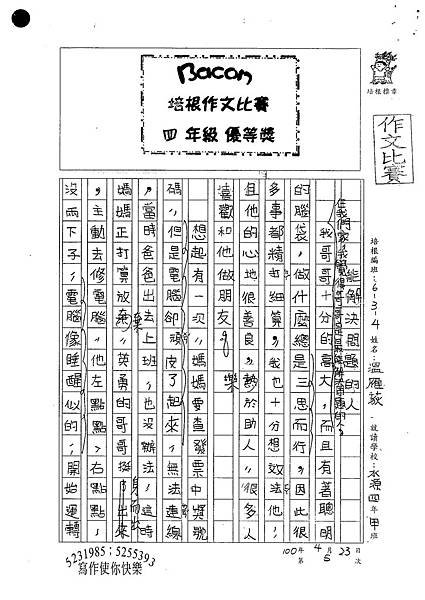 Bacon
培根作文比賽
四 年級 優等獎
培根標章
作文比賽
培根編班：6-3-4 姓名：溫雁菽 就讀學校：水源四年甲班
能解決問題的人
在我們家，我覺得哥哥是最能解決問題的人。
我哥哥十分的高大，而且有著聰明
的腦袋，做什麼總是三思而行。因此很
多事都精打細算，我也十分想效法他，
但他的心地很善良，勤於助人，很多人
喜歡和他做朋友。
想起有一次，媽媽要查發票中獎號
碼，但是電腦卻頑皮了起來，無法連線
，當時爸爸出去上班，也沒辦法，這時
媽媽正打算放棄，英勇的哥哥挺身而出
，主動去修電腦，他左點點、右點點，
沒兩下子，電腦像睡醒似的，開始運轉
100年 4月 23日
第 5 次
5231985；5255393
寫作使你快樂